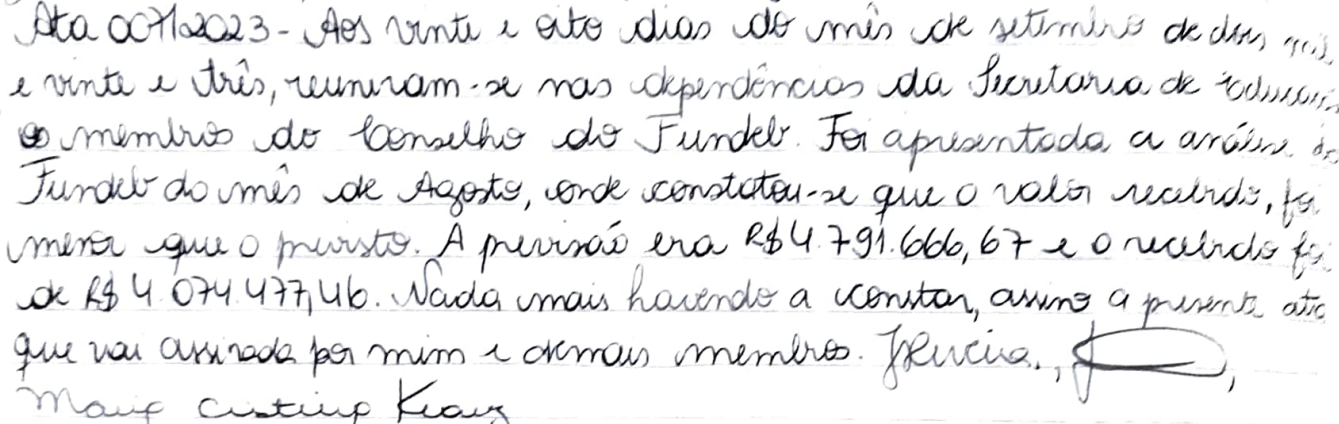 Ata 007/2023 - Aos vinte e oito dias do mês de setembro de dois mil
e vinte e três, reuniram-se nas dependências da Secretaria de Educação
os membros do Conselho do Fundeb. Foi apresentada a análise do
Fundeb do mês de Agosto, onde constatou-se que o valor recebido, foi
menor que o previsto. A previsão era R$ 4.791.666,67 e o recebido foi
de R$ 4.074.477,46. Nada mais havendo a constar, assino a presente ata
que vai assinada por mim e demais membros.